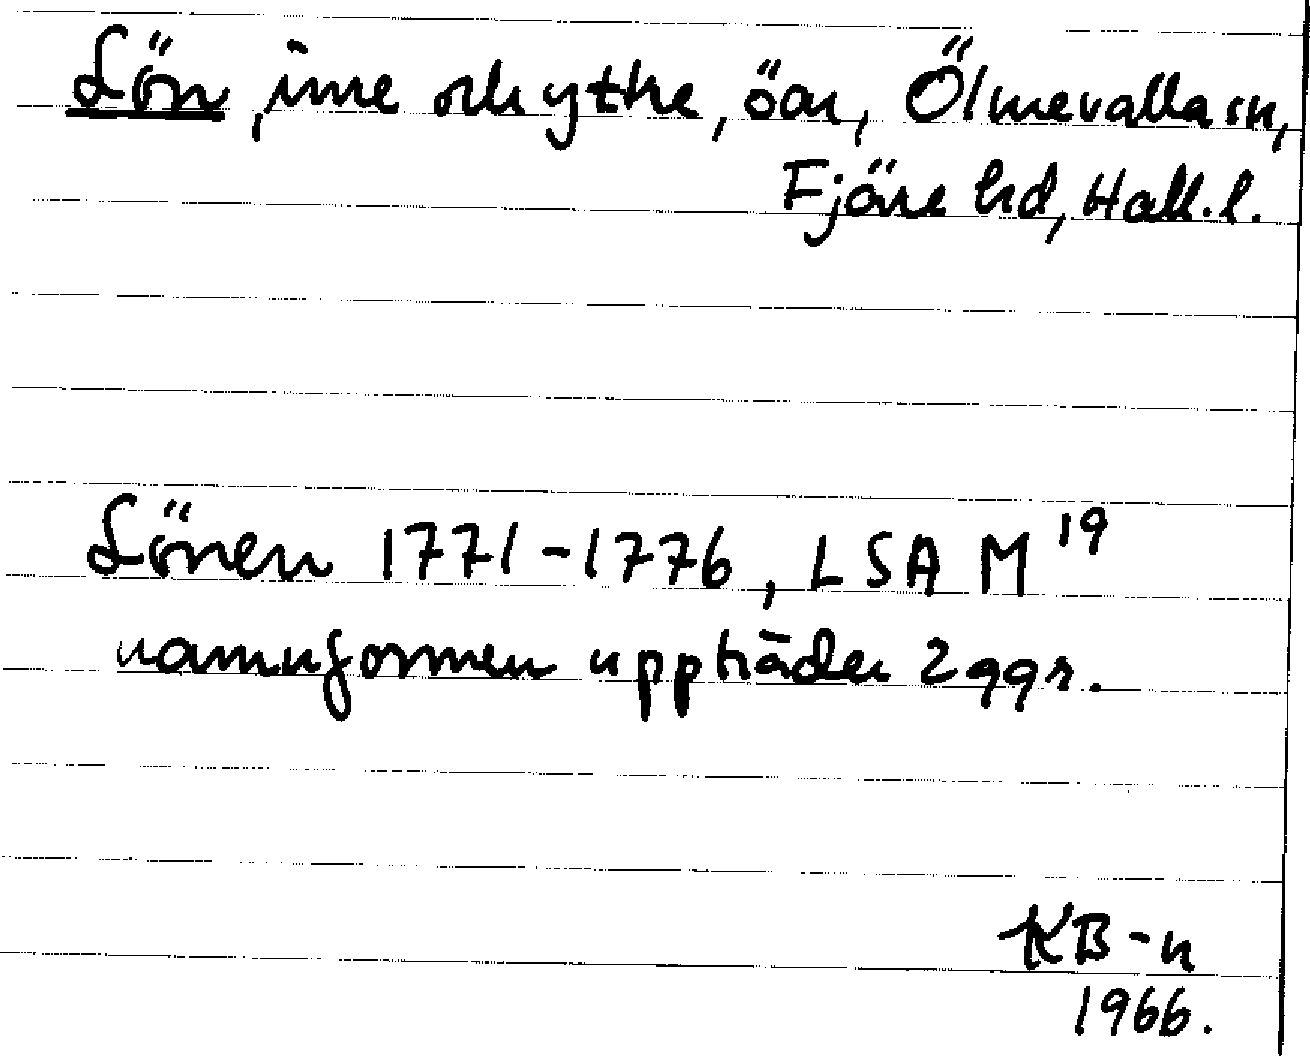 Lön, inre och yttre, öar, Ölmevalla sn,
Fjäre hd, Hall. l.
Lönen 1771-1776, LSA M 19
namnformen uppträder 2 ggr.
KB-n
1966.